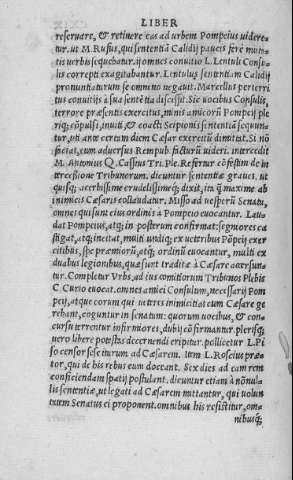 LIBER
reseruare, & retinere eas ad urbem Pompeius uidere-
tur. ut M. Rufus, qui sententiã Calidij paucis fere muta-
tis uerbis sequebatur. ij omnes conuitio L. Lentuli Consu-
lis correpti exagitabantur. Lentulus sententiam Calidij
pronuntiaturum se omnino negauit. Marcellus perterri-
tus conuitijs à sua sẽtẽtia discessit. Sic uocibus Consulis,
terrore præsentis exercitus, minis amicorũ Pompeij ple
riq; cõpulsi, inuiti, & coacti Scipionis sententiã sequun-
tur, uti ante certum diem Cæsar exercitũ dimittat. Si nõ
faciat, eum aduersus Rempub. facturũ uideri. intercedit
M. Antonius Q. Cassius Tri. Ple. Refertur cõfestim de in
tercessione Tribunorum. dicuntur sententiæ graues. ut
quisq; acerbissime crudelissimeq; dixit, ita q̃ maxime ab
inimicis Cæsaris collaudatur. Misso ad uesperũ Senatu,
omnes qui sunt eius ordinis à Pompeio euocantur. Lau-
dat Pompeius, atq; in posterum confirmat: segniores ca
stigat, atq; incitat, multi undiq; ex ueteribus Põpeij exer
citibus, spe præmiorũ, atq; ordinũ euocantur, multi ex
duabus legionibus, quæ sunt traditæ à Cæsare arcessun-
tur. Completur Vrbs, ad ius comitiorum Tribunos Plebis
C. Curio euocat. omnes amici Consulum, necessarij Pom
peij, atque eorum qui ueteres inimicitias cum Cæsare ge
rebant, coguntur in senatum: quorum uocibus, & con-
cursu terrentur infirmiores, dubij cõfirmantur. plerisq;
uero libere potestas decernendi eripitur. pollicetur L. Pi
so censor sese iturum ad Cæsarem. item L. Roscius præ-
tor, qui de his rebus eum doceant. Sex dies ad eam rem
conficiendam spatij postulant. dicuntur etiam à nõnul-
lis sententiæ, ut legati ad Cæsarem mittantur, qui uolun
tatem Senatus ei proponent. omnibus his resistitur, om-
nibusq;